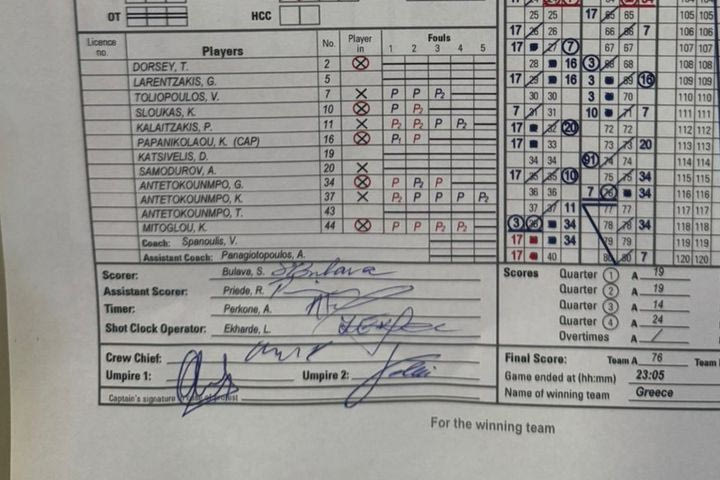 OT HCC
Licence no. Players No. Player in Fouls 1 2 3 4 5
DORSEY, T. 2
LARENTZAKIS, G. 5
TOLIOPOULOS, V. 7 X P P P2
SLOUKAS, K. 10 X P P2
KALAITZAKIS, P. 11 X P2 P2 P P
PAPANIKOLAOU, K. (CAP) 16 X P1 P
KATSIVELIS, D. 19
SAMODUROV, A. 20 X
ANTETOKOUNMPO, G. 34 X P P2 P
ANTETOKOUNMPO, K. 37 X P2 P P P P
ANTETOKOUNMPO, T. 43
MITOGLOU, K. 44 X P P2 P2 P2
Coach: Spanoulis, V.
Assistant Coach: Panagiotopoulos, A.
Scorer: Bulava, S. SBulava
Assistant Scorer: Priede, R.
Timer: Perkone, A.
Shot Clock Operator: Ekharde, L.
Crew Chief:
Umpire 1: Umpire 2:
Captain's signature in case of protest
25 25 17 65 65 105 105
17 26 26 66 66 7 106 106
17 7 67 67 107 107
28 16 3 68 68 108 108
17 29 16 3 69 16 109 109
30 30 3 70 110 110
7 31 31 10 71 7 111 111
17 32 20 72 72 112 112
17 33 73 73 20 113 113
34 34 91 74 74 114 114
17 35 35 10 75 75 34 115 115
36 36 7 76 34 116 116
37 37 11 77 77 117 117
3 38 34 78 78 34 118 118
17 34 79 79 119 119
17 40 80 80 7 120 120
Scores Quarter 1 A 19
Quarter 2 A 19
Quarter 3 A 14
Quarter 4 A 24
Overtimes A /
Final Score: Team A 76 Team
Game ended at (hh:mm) 23:05
Name of winning team Greece
For the winning team